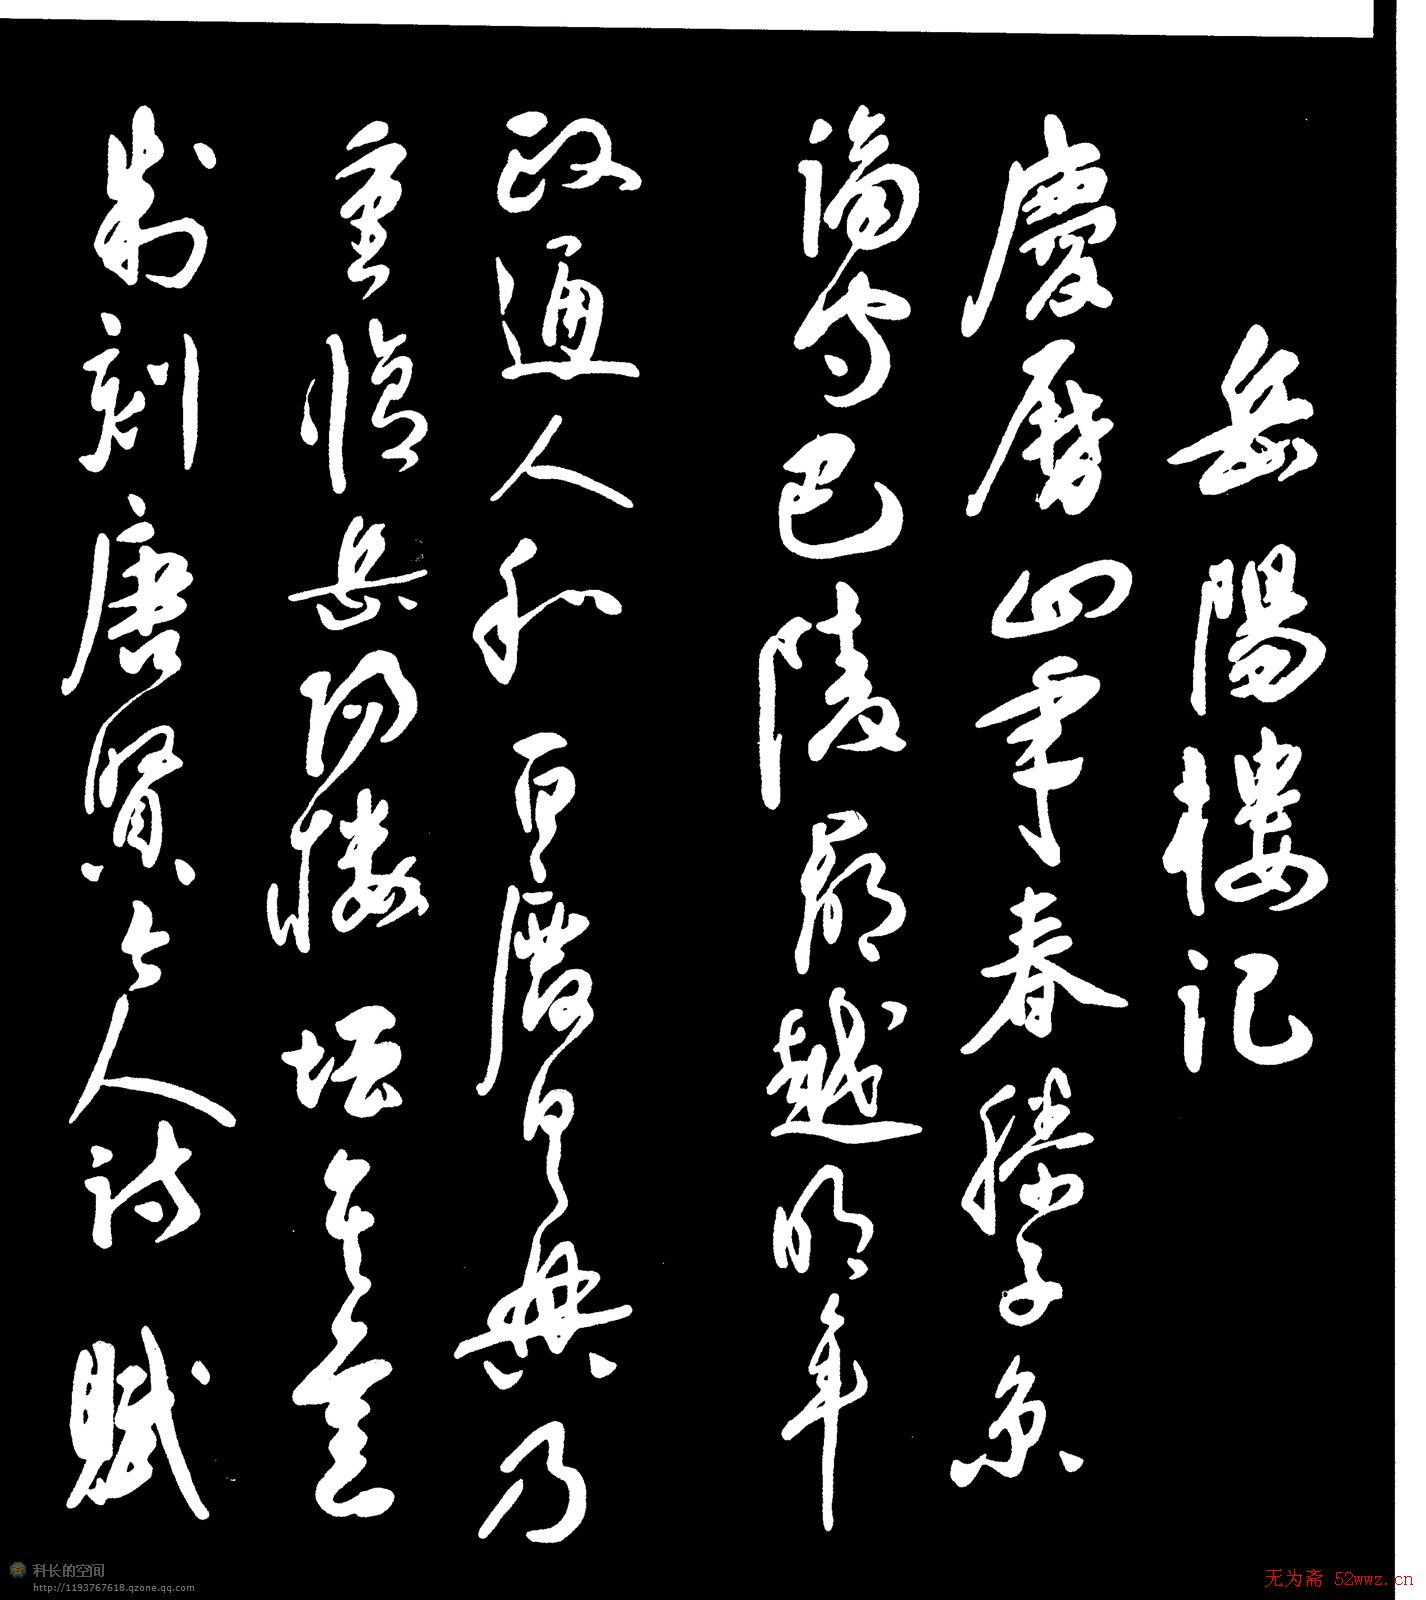 岳陽樓記
慶曆四年春滕子京
謫守巴陵郡越明年
政通人和百廢具興乃
重修岳陽樓增其舊
制刻唐賢今人詩賦
科长的空间
http://1193767618.qzone.qq.com
无为斋 52wwz.cn